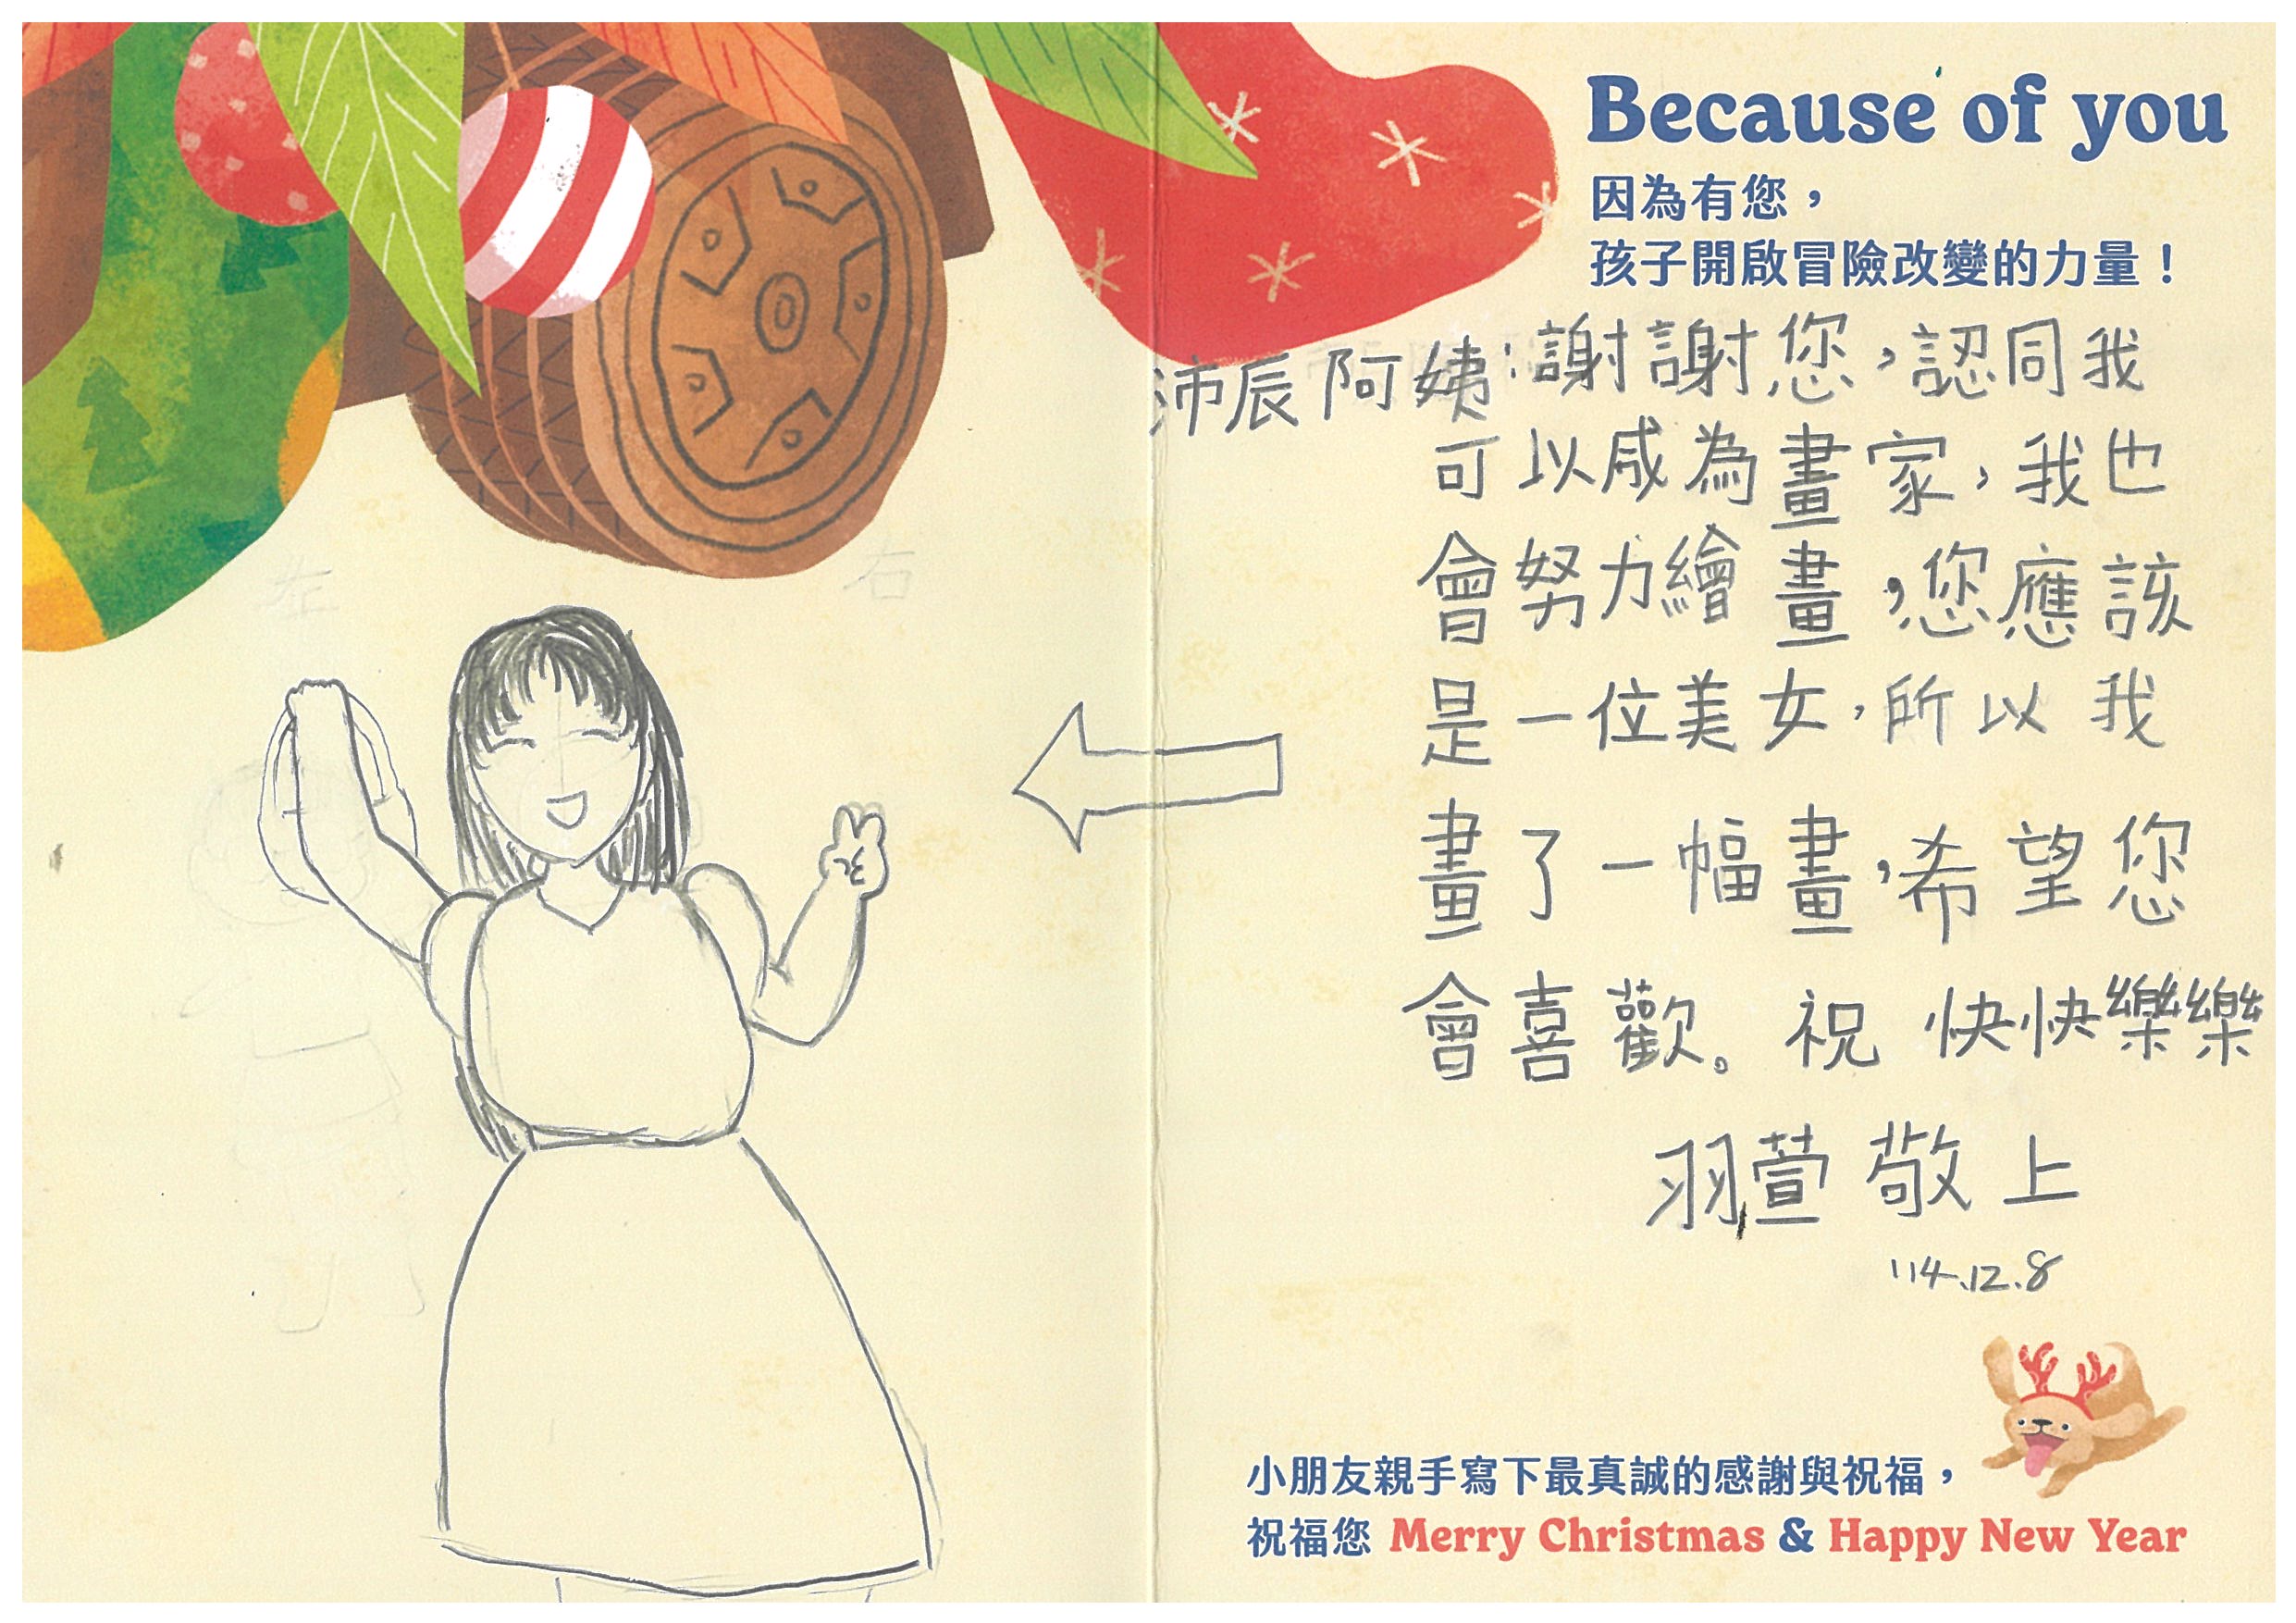 Because of you
因為有您，
孩子開啟冒險改變的力量！
沛辰阿姨：謝謝您，認同我
可以成為畫家，我也
會努力繪畫，您應該
是一位美女，所以我
畫了一幅畫，希望您
會喜歡。祝 快快樂樂
羽萱 敬上
114.12.8
左
右
小朋友親手寫下最真誠的感謝與祝福，
祝福您 Merry Christmas & Happy New Year